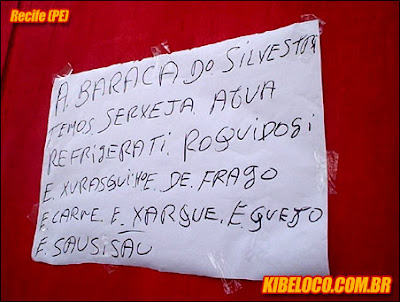 Recife (PE)
A BARACA DO SILVESTR
TEMOS SERXEJA AGUA
REFRIGERATI ROQUIDOGI
E XURASQUIHPE DE FRAGO
E CARPE E XARQUE. E QUEJO
E SAUSISAU
KIBELOCO.COM.BR